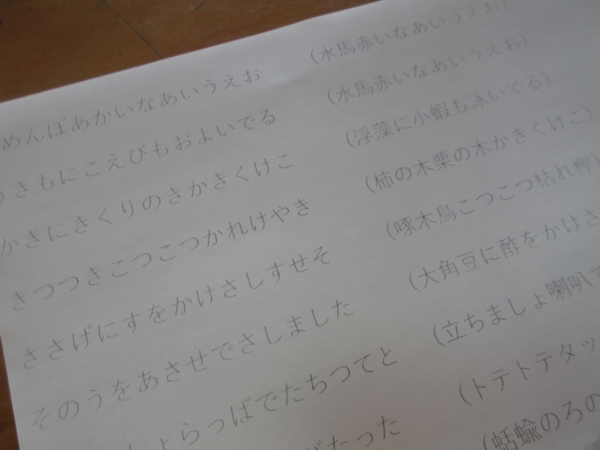 めんぼあかいなあいうえお (水馬赤いなあいうえお)
きもにこえびもおよいでる (水馬赤いなあいうえお)
かきにきくりのきかきくけこ (浮藻に小蝦も泳いでる)
きつつきこつこつかれけやき (柿の木栗の木かきくけこ)
ささげにすをかけさしすせそ (啄木鳥こつこつ枯れ欅)
そのうをあさせでさしました (大角豆に酢をかけさ
しょらっぱでたちつてと (立ちましょ喇叭で
たった (トテトテタッ
(蛞蝓のろの